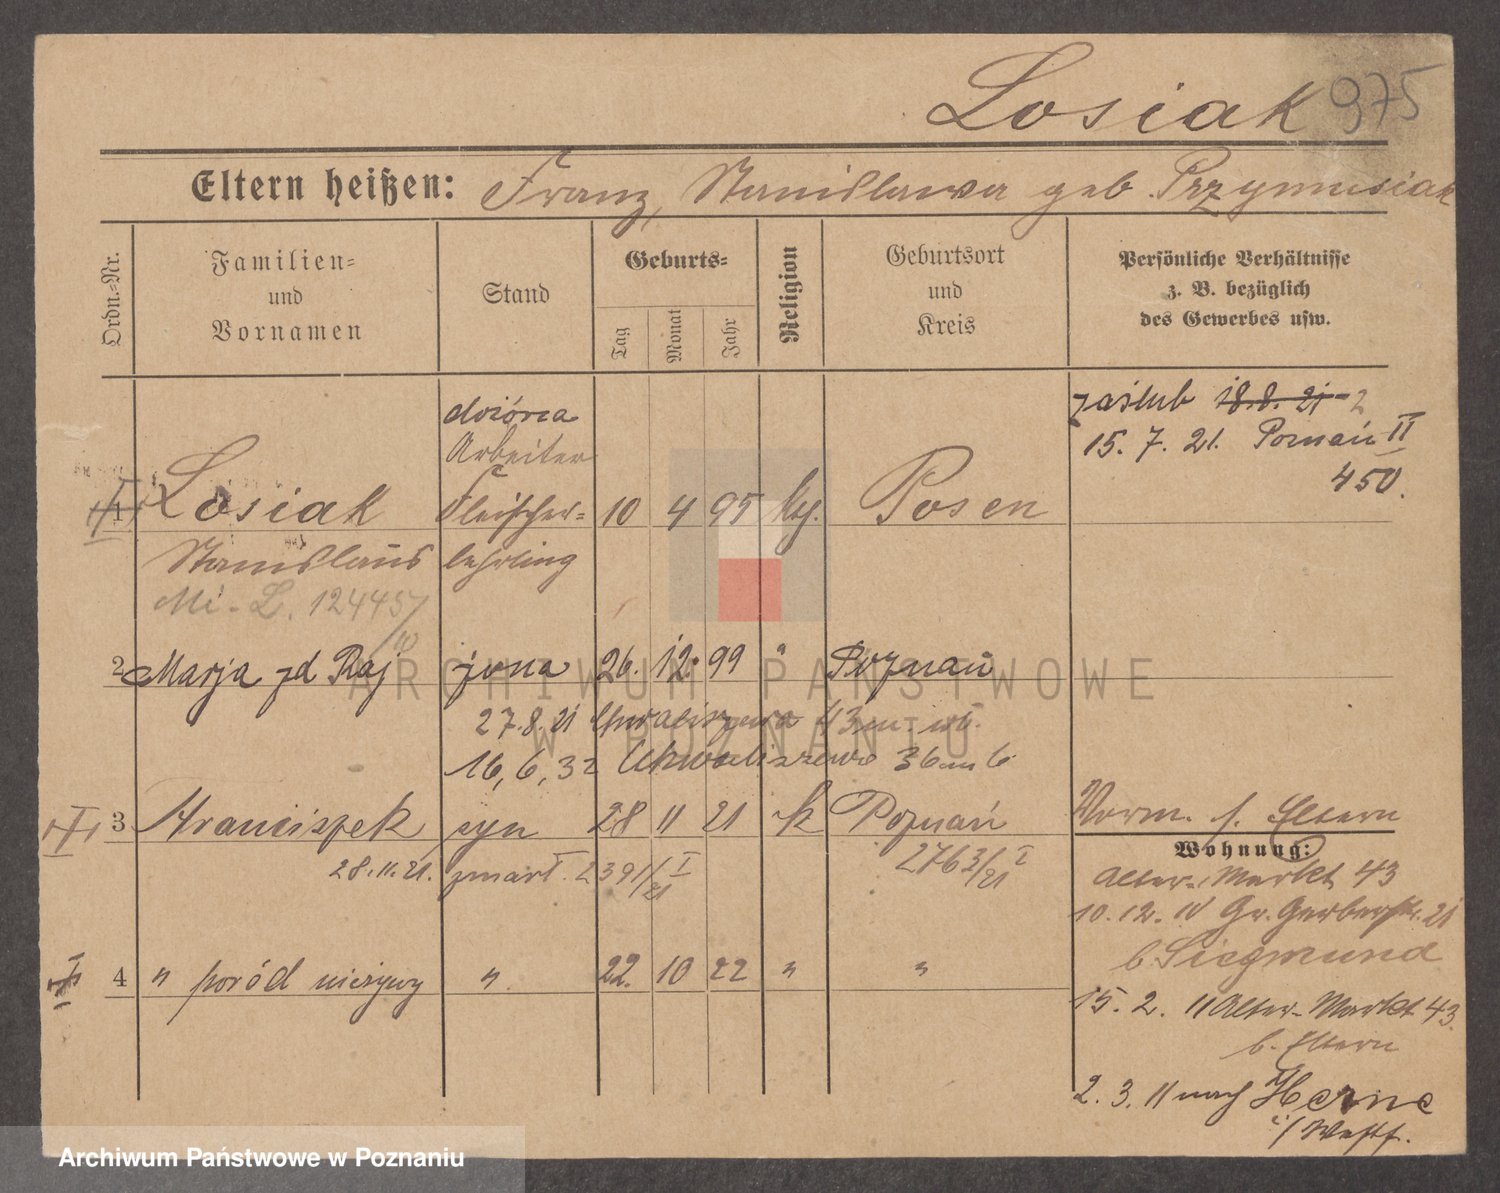 Losiak 975
Eltern heißen: Franz, Stanislawa geb. Przymusiak
Ordn.=Nr.
Familien=
und
Vornamen
Stand
Geburts=
Tag
Monat
Jahr
Religion
Geburtsort
und
Kreis
Persönliche Verhältnisse
z. B. bezüglich
des Gewerbes usw.
dozórca
Arbeiter
1 Losiak Fleischer= 10 4 95 Posen
Stanislaus lehrling
zaślub 18.8.21
15. 7. 21. Poznań II
450.
2 Marja zd Raj żona 26. 12. 99 " Poznań
27.8.21 Chwaliszewo 43 m.
16,6,32 Chwaliszewo 36 m 6
3 Franciszek syn 28 11 21 k Poznań
28.11.21. zmarł. 2391/21 I 2763/21 I
Vorm. s. Eltern
Wohnung:
Alter-Markt 43
10. 12. 10 Gr. Gerberstr. 21
b. Siegmund
15. 2. 11 Alter-Markt 43.
b. Eltern
2. 3. 11 nach Herne
i/Westf.
4 " poród nieżywy " 22. 10 22 " "
ARCHIWUM PAŃSTWOWE
W POZNANIU
Archiwum Państwowe w Poznaniu